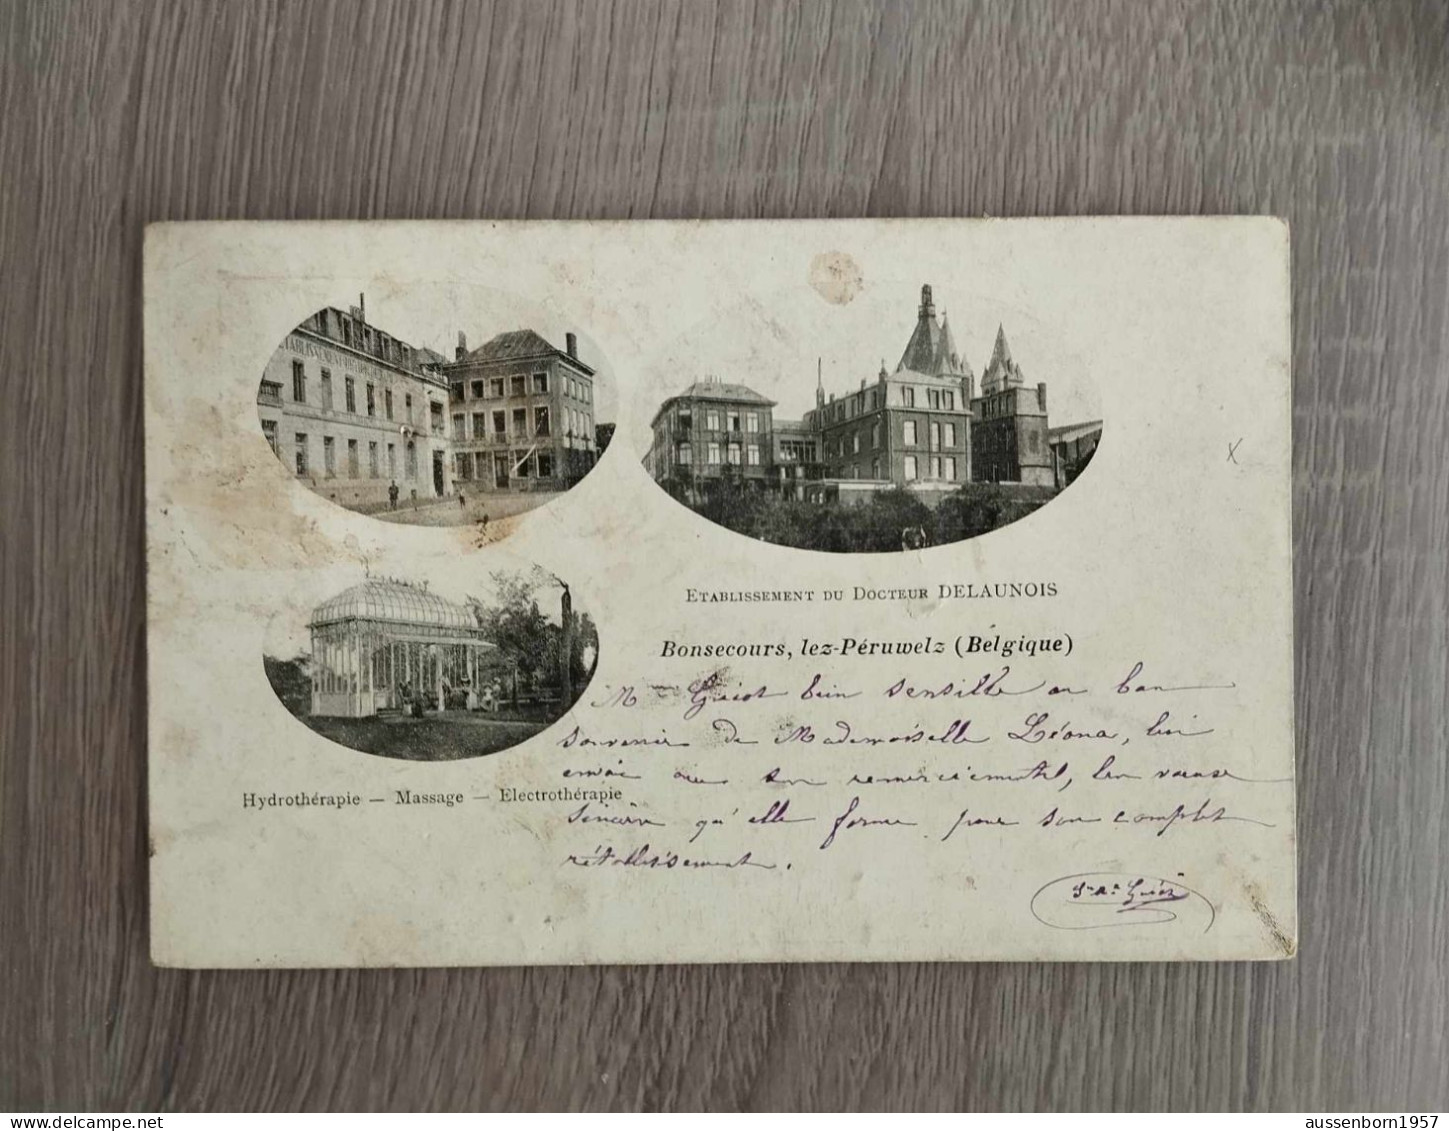 ETABLISSEMENT DU DOCTEUR DELAUNOIS
Bonsecours, lez-Péruwelz (Belgique)
Hydrothérapie — Massage — Electrothérapie
M Guiot bien sensible au bon
souvenir de Mademoiselle Léona, lui
envoie avec son remerciement, les vœux
sincères qu'elle forme pour son complet
rétablissement.
Guiot
x
delcampe.net
aussenborn1957